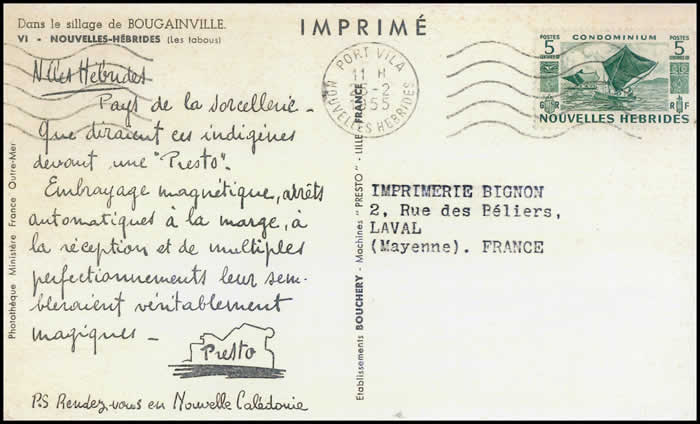 Dans le sillage de BOUGAINVILLE.
VI - NOUVELLES-HÉBRIDES (Les tabous)
IMPRIMÉ
Nlles Hébrides
Pays de la sorcellerie -
Que diraient ces indigènes
devant une "Presto".
Embrayage magnétique, arrêts
automatiques à la marge, à
la réception et de multiples
perfectionnements leur sem-
bleraient véritablement
magiques -
Presto
P.S Rendez-vous en Nouvelle Calédonie
Photothèque Ministère France Outre-Mer
Etablissements BOUCHERY - Machines "PRESTO" - LILLE - FRANCE
PORT VILA
11 H
-2
1955
NOUVELLES HEBRIDES
5 CENTIMES CONDOMINIUM 5 CENTIMES
GR RF
NOUVELLES HEBRIDES
IMPRIMERIE BIGNON
2, Rue des Béliers,
LAVAL
(Mayenne). FRANCE